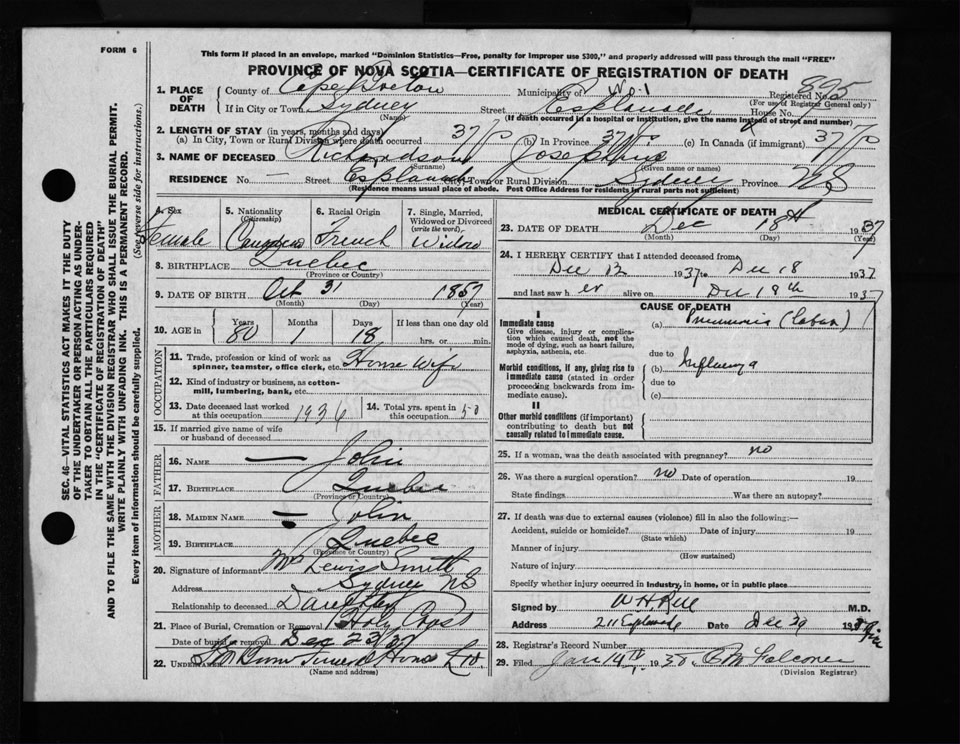 FORM 6
This form if placed in an envelope, marked "Dominion Statistics—Free, penalty for improper use $300," and properly addressed will pass through the mail "FREE"
PROVINCE OF NOVA SCOTIA—CERTIFICATE OF REGISTRATION OF DEATH
SEC. 46—VITAL STATISTICS ACT MAKES IT THE DUTY
OF THE UNDERTAKER OR PERSON ACTING AS UNDER-
TAKER TO OBTAIN ALL THE PARTICULARS REQUIRED
IN THE "CERTIFICATE OF REGISTRATION OF DEATH"
AND TO FILE THE SAME WITH THE DIVISION REGISTRAR WHO SHALL ISSUE THE BURIAL PERMIT.
WRITE PLAINLY WITH UNFADING INK. THIS IS A PERMANENT RECORD.
Every item of information should be carefully supplied. (See reverse side for instructions.)
1. PLACE OF DEATH County of Cape Breton Municipality of No. 1 Registered No. 895
(For use of Registrar General only)
If in City or Town Sydney Street Esplanade House No.
(Name) (If death occurred in a hospital or institution, give the name instead of street and number)
2. LENGTH OF STAY (in years, months and days)
(a) In City, Town or Rural Division where death occurred 37 yrs (b) In Province 37 yrs (c) In Canada (if immigrant) 37
3. NAME OF DECEASED Richardson Josephine
(Surname) (Given name or names)
RESIDENCE No. — Street Esplanade City, Town or Rural Division Sydney Province NS
(Residence means usual place of abode. Post Office Address for residents in rural parts not sufficient)
4. Sex Female
5. Nationality (Citizenship) Canadian
6. Racial Origin French
7. Single, Married, Widowed or Divorced (write the word) Widow
8. BIRTHPLACE Quebec
(Province or Country)
9. DATE OF BIRTH Oct 31 1857
(Month) (Day) (Year)
10. AGE in Years 80 Months 1 Days 18 If less than one day old hrs. or min.
OCCUPATION
11. Trade, profession or kind of work as spinner, teamster, office clerk, etc. House Wife
12. Kind of industry or business, as cotton-mill, lumbering, bank, etc.
13. Date deceased last worked at this occupation 1936
14. Total yrs. spent in this occupation 50
15. If married give name of wife or husband of deceased
FATHER
16. NAME — John
17. BIRTHPLACE Quebec
(Province or Country)
MOTHER
18. MAIDEN NAME —
19. BIRTHPLACE Quebec
(Province or Country)
20. Signature of informant Mrs Lewis Smith
Address Sydney NS
Relationship to deceased Daughter
21. Place of Burial, Cremation or Removal Holy Cross
Date of burial or removal Dec 23/37
22. UNDERTAKER Funeral Home Ltd
(Name and address)
MEDICAL CERTIFICATE OF DEATH
23. DATE OF DEATH Dec 18th 1937
(Month) (Day) (Year)
24. I HEREBY CERTIFY that I attended deceased from
Dec 12 1937 to Dec 18 1937
and last saw her alive on Dec 18th 1937
CAUSE OF DEATH
I
Immediate cause
Give disease, injury or complication which caused death, not the mode of dying, such as heart failure, asphyxia, asthenia, etc.
(a) Pneumonia (Lobar)
due to
Morbid conditions, if any, giving rise to immediate cause (stated in order proceeding backwards from immediate cause).
(b) Influenza
due to
(c)
II
Other morbid conditions (if important) contributing to death but not causally related to immediate cause.
25. If a woman, was the death associated with pregnancy? no
26. Was there a surgical operation? no Date of operation 19
State findings Was there an autopsy?
27. If death was due to external causes (violence) fill in also the following:—
Accident, suicide or homicide? Date of injury 19
(State which)
Manner of injury
(How sustained)
Nature of injury
Specify whether injury occurred in industry, in home, or in public place
Signed by M.D.
Address 211 Esplanade Date Dec 29 1937
28. Registrar's Record Number
29. Filed Jan 14th, 1938, Falconer
(Division Registrar)